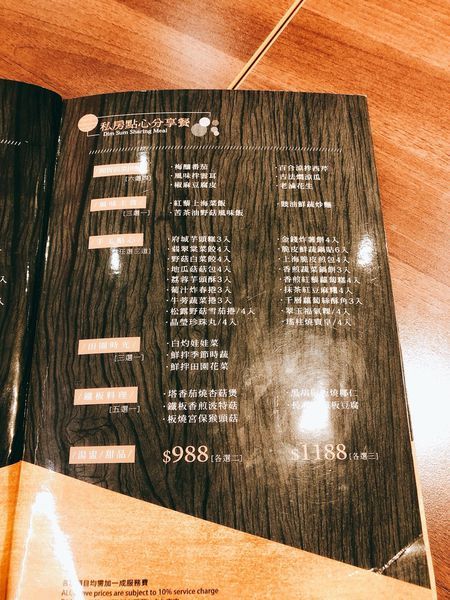 私房點心分享餐
Dim Sum Sharing Meal
·梅釀番茄 ·百合涼拌西芹
·風味拌雲耳 ·古法燜涼瓜
·椒麻豆腐皮 ·老滷花生
風味主食 [三選一]
·紅藜上海菜飯 ·豉油鮮蔬炒麵
·苦茶油野菇風味飯
手工點心 [任選三道]
·府城芋頭糕3入 ·金錢炸薯餅4入
·翡翠粟菱餃4入 ·脆皮鮮蔬鍋貼6入
·野菇白菜餃4入 ·上海脆皮煎包4入
·地瓜菇菇包4入 ·香煎蔬菜鍋餅3入
·荔蓉芋頭酥3入 ·香煎紅藜蘿蔔糕4入
·葡汁炸春捲3入 ·抹茶紅豆麻糬4入
·牛蒡蔬菜捲3入 ·千層蘿蔔絲酥角3入
·松露野菇雪茄捲/4入 ·翠玉福氣粿/4入
·晶瑩珍珠丸/4入 ·瑤柱燒賣皇/4入
田園時光 [三選一]
·白灼娃娃菜
·鮮拌季節時蔬
·鮮拌田園花菜
鐵板料理 [五選一]
·塔香茄燒杏菇煲 板燒椰仁
·鐵板香煎波特菇 板豆腐
·板燒宮保猴頭菇
/湯盅/甜品/ $988 [各選二] $1188 [各選三]
項目均需加一成服務費
ve prices are subject to 10% service charge